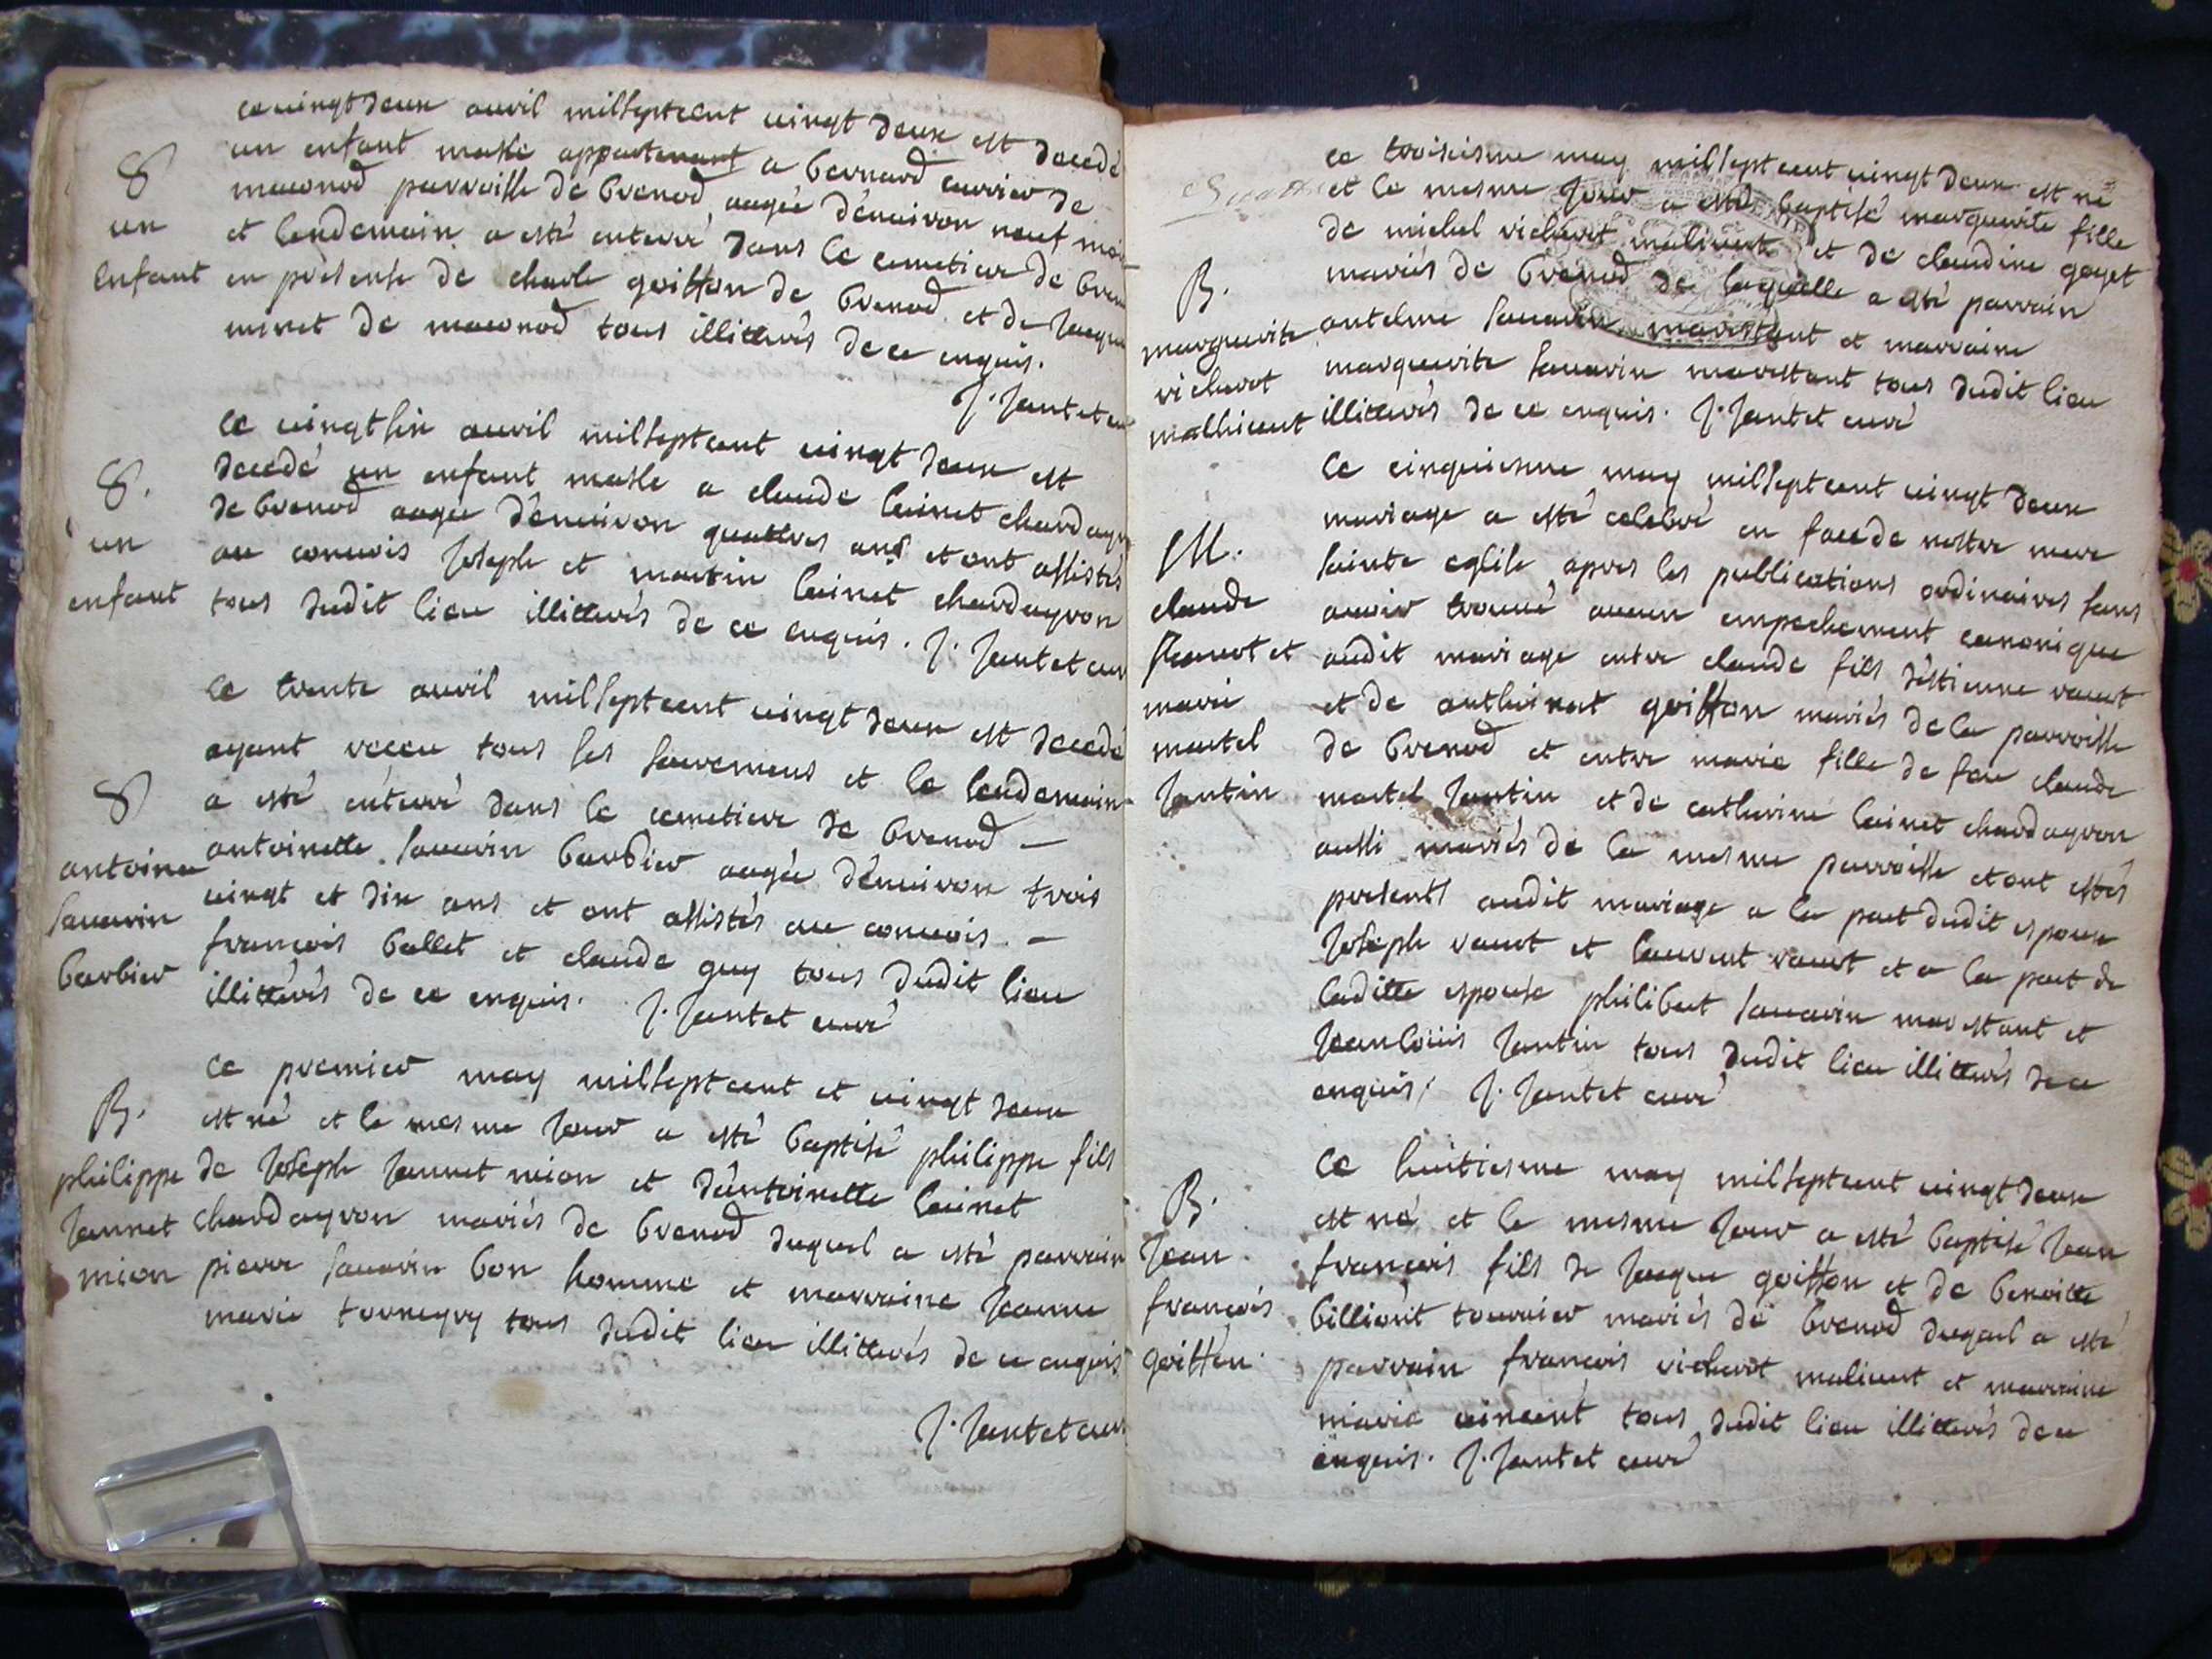 ce vingt deux avril mil sept cent vingt deux est decedé
un enfant masle appartenant a bernard currier de
maconod parroisse de brenod aagée d'enuiron neuf moi
et lendemain a esté enterré dans le cemetiere de bren
en presense de charle goiffon de brenod et de Jacque
minet de maconod tous illitterés de ce enquis.
J. Jantet cu
S
un
enfant
ce vingt six avril mil sept cent vingt deux est
decedé un enfant masle a claude Cuinet chardayr
de brenod aagée d'enuiron quattres ans et ont assistés
au conuois Joseph et martin Cuinet chardayron
tous dudit lieu illitterés de ce enquis. J. Jantet cur
S.
un
enfant
ce trente avril mil sept cent vingt deux est decedé
ayant receu tous les sacremens et le lendemain
a esté enterré dans le cemetiere de brenod –
antoinette sauarin barbier aagée d'enuiron trois
vingt et dix ans et ont assistés au conuois. –
francois ballet et claude guy tous dudit lieu
illitterés de ce enquis. J. Jantet curé
S
antoine
sauarin
barbier
ce premier may mil sept cent et vingt deux
est né et le mesme Jour a esté baptisé philippe fils
de Joseph Jannet mion et d'antoinette Cuinet
chardayron mariés de brenod duquel a esté parrain
pierre sauarin bon homme et marraine Jeanne
marie tornegry tous dudit lieu illitterés de ce enquis
J. Jantet cur
B.
philippe
Jannet
mion
ce troisiesme may mil sept cent vingt deux est né
et le mesme Jour a esté baptisé marguerite fille
de michel vicherot maliuent et de claudine goyet
mariés de brenod de laquelle a esté parrain
antelme sauarin marestant et marraine
marguerite sauarin marestant tous dudit lieu
illitterés de ce enquis. J. Jantet curé
B.
marguerite
vicherot
malhiuent
ce cinquiesme may mil sept cent vingt deux
mariage a esté celebré en face de nostre mere
sainte eglise apres les publications ordinaires sans
auoir trouué aucun empechement canonique
audit mariage entre claude fils d'estienne rauet
et de antheinat goiffon mariés de la parroisse
de brenod et entre marie fille de feu claude
martel Jantin et de catherine Cuinet chardayron
aussi mariés de la mesme parroisse et ont estés
presents audit mariage a la part dudit espoux
Joseph rauet et laurent rauet et a la part de
laditte espouse philibert sauarin marestant et
Jean louis Jantin tous dudit lieu illitterés de ce
enquis. J. Jantet curé
M.
claude
rauet et
marie
martel
Jantin
ce huitiesme may mil sept cent vingt deux
est né et le mesme Jour a esté baptisé Jean
francois fils de Jacque goiffon et de benoitte
billioüt tournier mariés de brenod duquel a esté
parrain francois vicherot maliuent et marraine
marie vincent tous dudit lieu illitterés de ce
enquis. J. Jantet curé
B.
Jean
francois
goiffon.